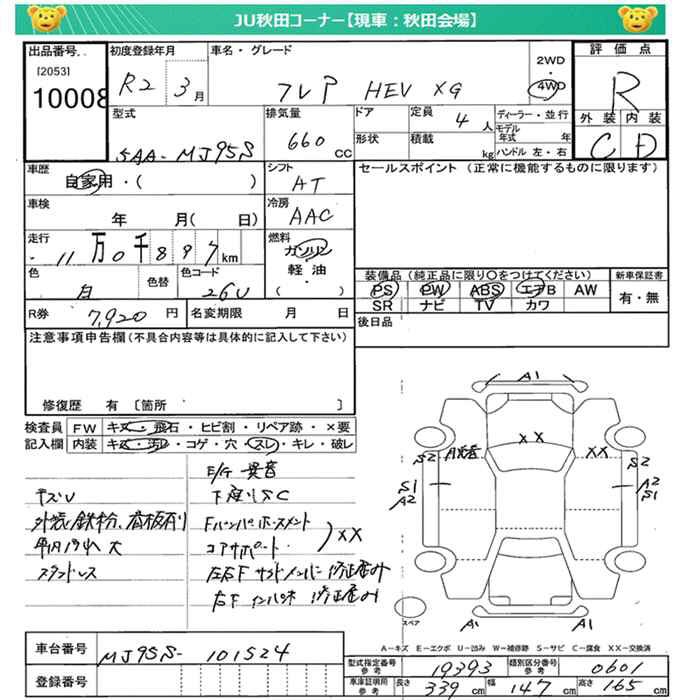 JU秋田コーナー【現車：秋田会場】
出品番号. 初度登録年月 車名・グレード 評価点
[2053] 2WD
R2 3月 アルト HEV XG ・4WD R
10008
型式 排気量 ドア 定員 ディーラー・並行 外装 内装
5AA-MJ95S 660 CC 4人 モデル年式 年 C D
形状 積載 kg ハンドル 左・右
車歴 シフト セールスポイント (正常に機能するものに限ります)
自家用・( ) AT
車検 冷房
年 月( 日) AAC
走行 燃料
11万0千897km ガソリン
色 色替 色コード 軽・油 装備品 (純品品に限り○をつけてください) 新車保証書
白 26U ( ) PS PW ABS エアB AW 有・無
SR ナビ TV カワ
R券 7,920円 名変期限 月 日 後日品
注意事項申告欄 (不具合内容等は具体的に記入して下さい)
修復歴 有 〔箇所 〕
検査員 FW キズ・飛石・ヒビ割・リペア跡・×要
記入欄 内装 キズ・汚レ・コゲ・穴・スレ・キレ・破レ
E/G 異音
キズU 下廻りSC
外装鉄粉、看板有り Fバンパホースメント
車内汚れ 大 コアサポート. XX
スタッドレス 左右Fサイドメンバー 修正歪み
右F インパネ 修正歪み
A1
XX
S2 XX S2
S1 A2
A2 S1
A1 A1
スペア
A−キズ E−エクボ U−凹み W−補修跡 S−サビ C−腐食 XX−交換済
車台番号 MJ95S-101524
登録番号
型式指定番号 参考 19393 類別区分番号 参考 0601
車庫証明用 参考 長さ 339 cm 幅 147 cm 高さ 165 cm